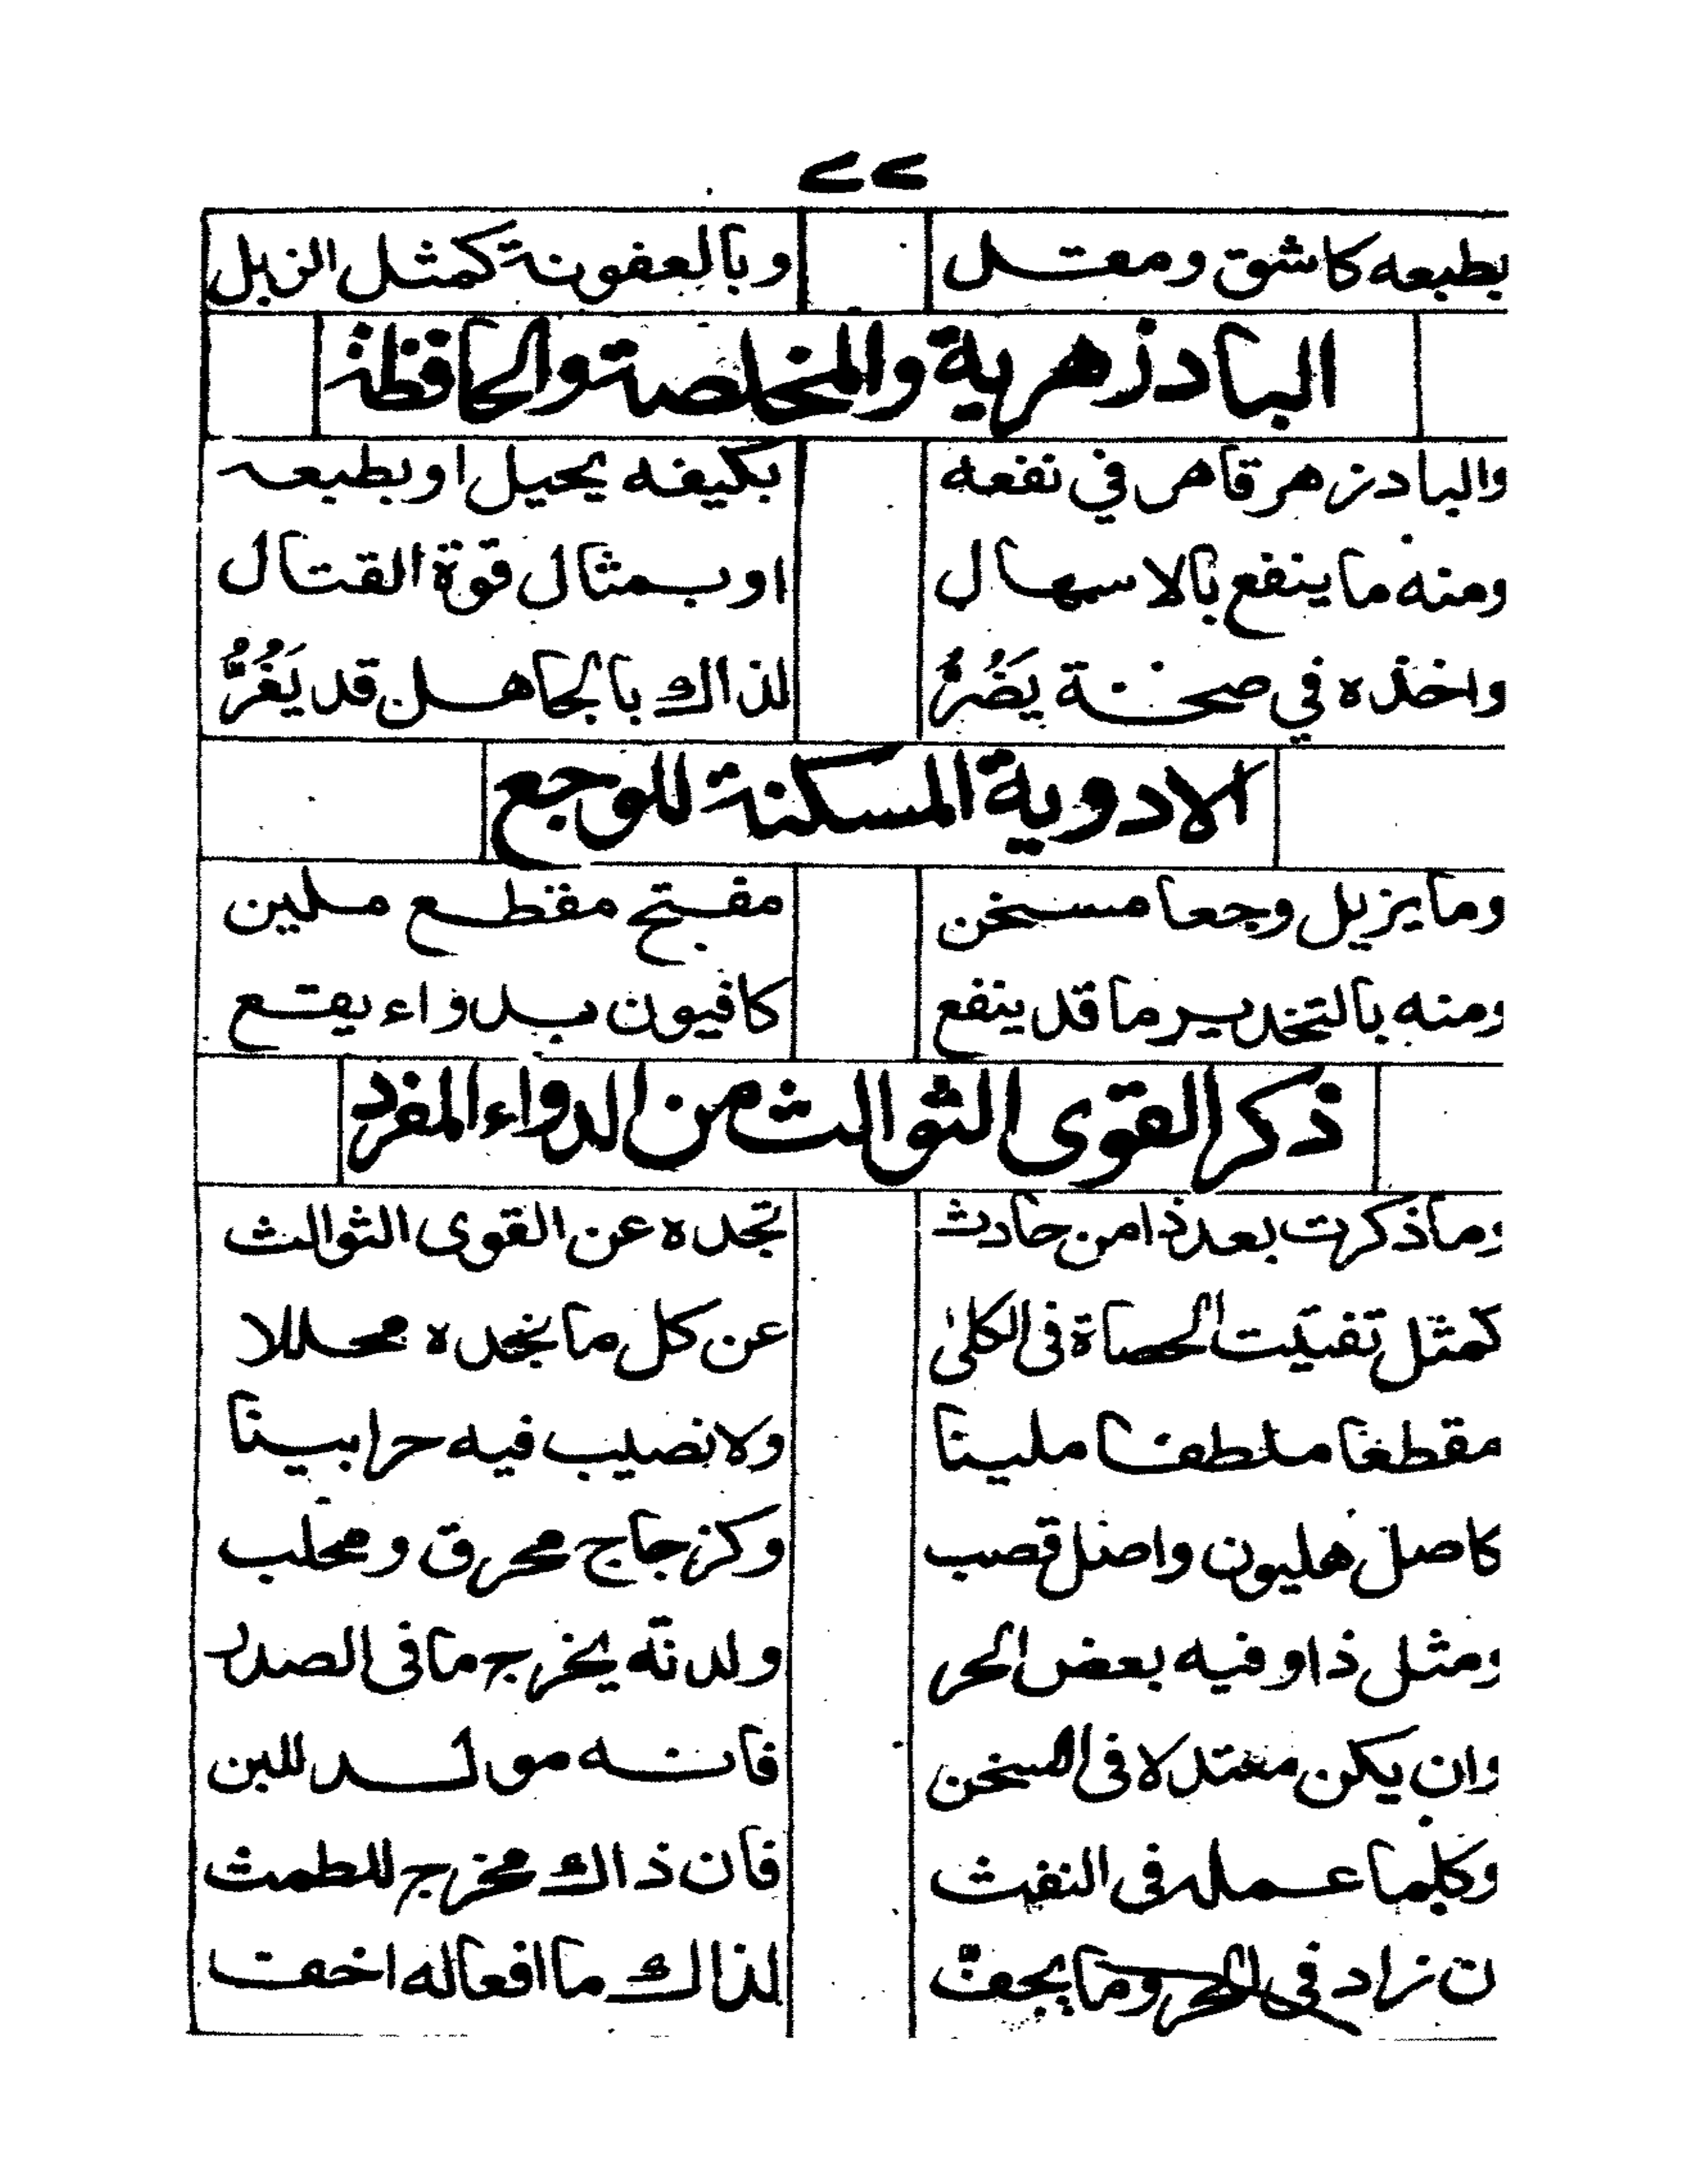 ٧٧
بطبعه كاشق ومقل وبالعفونة كمثل الزبل
البادزهرية والمخلصة والحافظة
والبادزهر قاهر في نفعه بكيفه يحيل او بطبعه
ومنه ما ينفع بالاسهال او بمثال قوة القتال
واخذه في صحة يَضُرُّ لذاك بالجاهل قد يَغُرُّ
الادوية المسكنة للوجع
وما يزيل وجعا مسخن مفتح مقطع ملين
ومنه بالتخدير ما قد ينفع كافيون بدواء يقتع
ذكر القوى الثوالث من الدواء المفرد
وما ذكرت بعد ذا من حادث تجده عن القوى الثوالث
كمثل تفتيت الحصاة فى الكلى عن كل ما نجده محللا
مقطعا ملطفا ملينا ولا نصيب فيه حرا بينا
كاصل هليون واصل قصب وكزجاج محرق ومحلب
ومثل ذا او فيه بعض الحر ولدنه يخرج ما فى الصدر
وان يكن معتدلا فى السخن فانه مولد للبن
وكلما عمله فى النفث فان ذاك مخرج للطمث
ن زاد في الحر وما يجفّ لذاك ما افعاله اخف